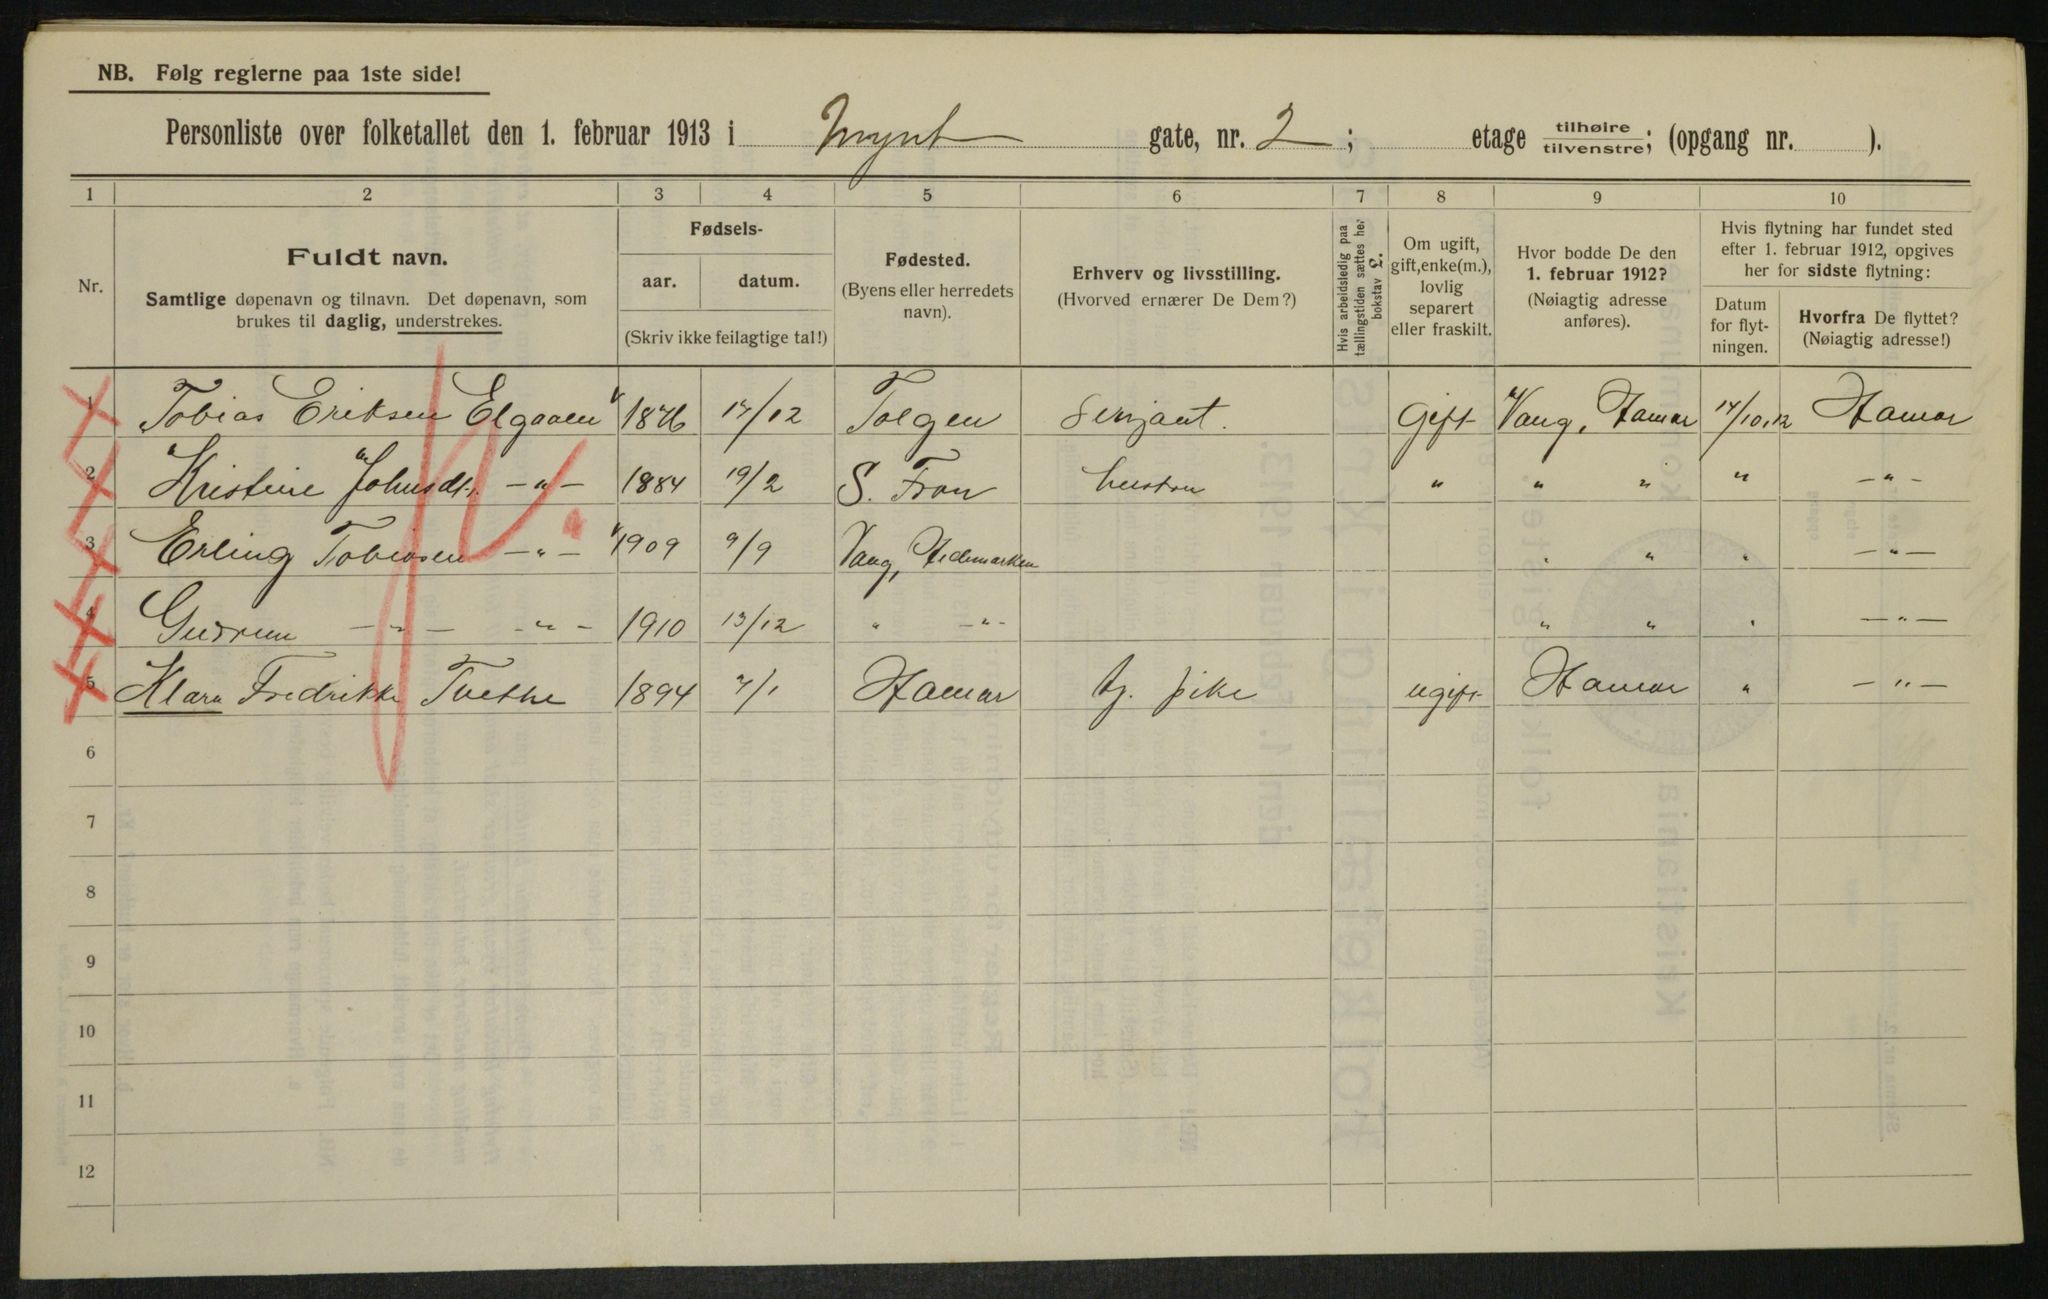 NB. Følg reglerne paa 1ste side!
Personliste over folketallet den 1. februar 1913 i Mynt gate, nr. 2 ; etage tilhøire tilvenstre; (opgang nr. ).
1 2 3 4 5 6 7 8 9 10
Nr.
Fuldt navn.
Samtlige døpenavn og tilnavn. Det døpenavn, som
brukes til daglig, understrekes.
Fødsels-
aar. datum.
(Skriv ikke feilagtige tal!)
Fødested.
(Byens eller herredets
navn).
Erhverv og livsstilling.
(Hvorved ernærer De Dem?)
Hvis arbeidsledig paa
tællingstiden sættes her
bokstav L.
Om ugift,
gift, enke(m.),
lovlig
separert
eller fraskilt.
Hvor bodde De den
1. februar 1912?
(Nøiagtig adresse
anføres).
Hvis flytning har fundet sted
efter 1. februar 1912, opgives
her for sidste flytning:
Datum
for flyt-
ningen.
Hvorfra De flyttet?
(Nøiagtig adresse!)
1 Tobias Eriksen Elgaaen 1876 17/12 Tolgen Serjant. Gift Vang, Hamar 14/10.12 Hamar
2 Kristine Johnsdt. -„- 1884 19/2 S. Fron hustru „ „ „ „ -„-
3 Erling Tobiasen -„- 1909 9/9 Vang, Hedemarken „ „ „ -„-
4 Gudrun -„- -„- 1910 13/12 „ -„- „ „ „ -„-
5 Klara Fredrikke Tvethe 1894 7/1 Hamar tj. pike ugift Hamar „ -„-
6
7
8
9
10
11
12